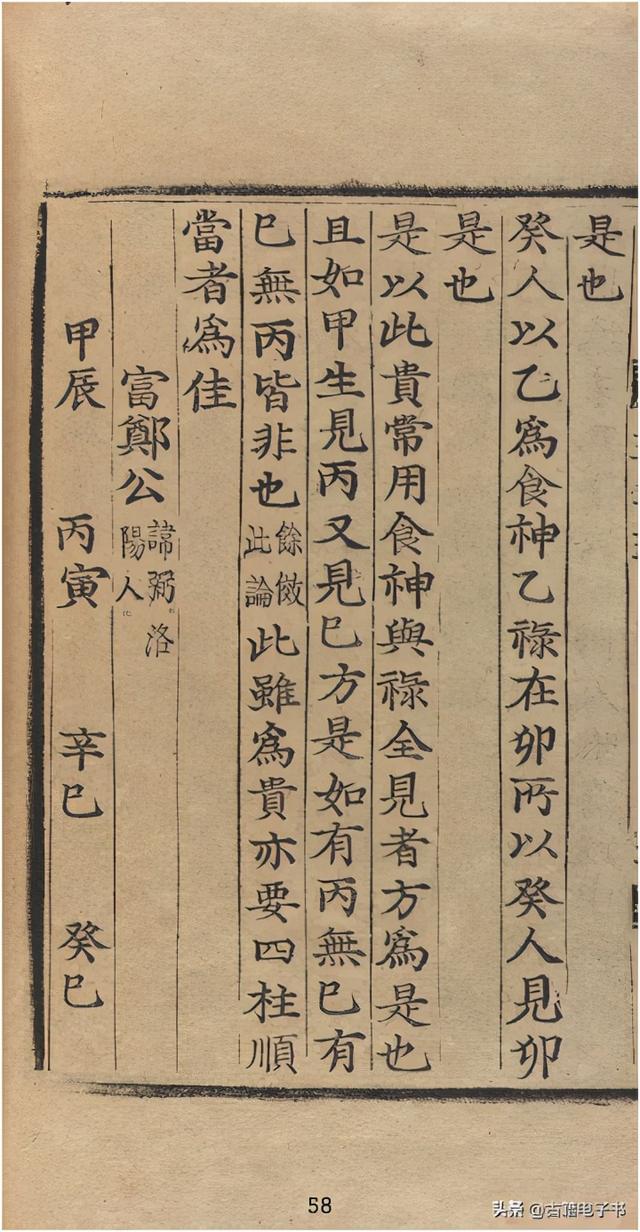 是也
癸人以乙爲食神乙祿在卯所以癸人見卯
是也
是以此貴常用食神與祿全見者方爲是也
且如甲生見丙又見巳方是如有丙無巳有
巳無丙皆非也餘倣此論此雖爲貴亦要四柱順
當者爲佳
富鄭公諱弼洛陽人
甲辰 丙寅 辛巳 癸巳
58
头条 @古籍电子书